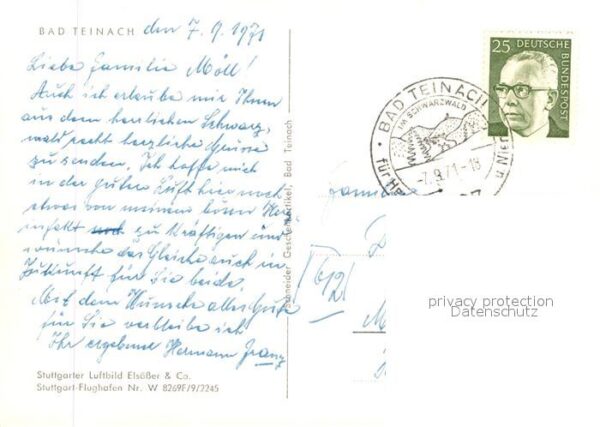 BAD TEINACH den 7.9.1971
Liebe Familie Möll!
Auch ich erlaube mir Ihnen
aus dem herrlichen Schwarz,
wald recht herzliche Grüsse
zu senden. Ich hoffe mich
in der guten Luft hier noch
etwas von meinem bösen Her
infakt zu kräftigen und
wünsche das Gleiche auch in
Zukunft für Sie beide.
Mit dem Wunsche alles Gute
für Sie verbleibe ich
Ihr ergebener Hermann Franz
Stuttgarter Luftbild Elsäßer & Co.
Stuttgart-Flughafen Nr. W 8269F/9/2245
Schneider Geschenkartikel, Bad Teinach
25 DEUTSCHE
BUNDESPOST
BAD TEINACH
IM SCHWARZWALD
-7.9.71-18
für He
u Nie
Familie
privacy protection
Datenschutz